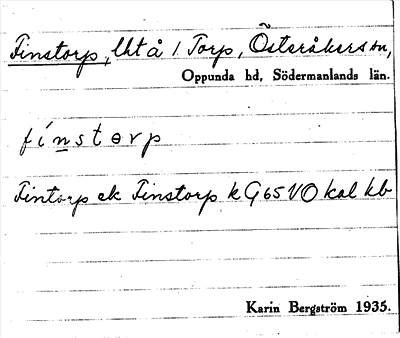 Finstorp, lht å 1 Torp, Österåkers sn,
Oppunda hd, Södermanlands län.
fínstɵrp
Fintorp ek Finstorp k G 65 VO kal kb
Karin Bergström 1935.